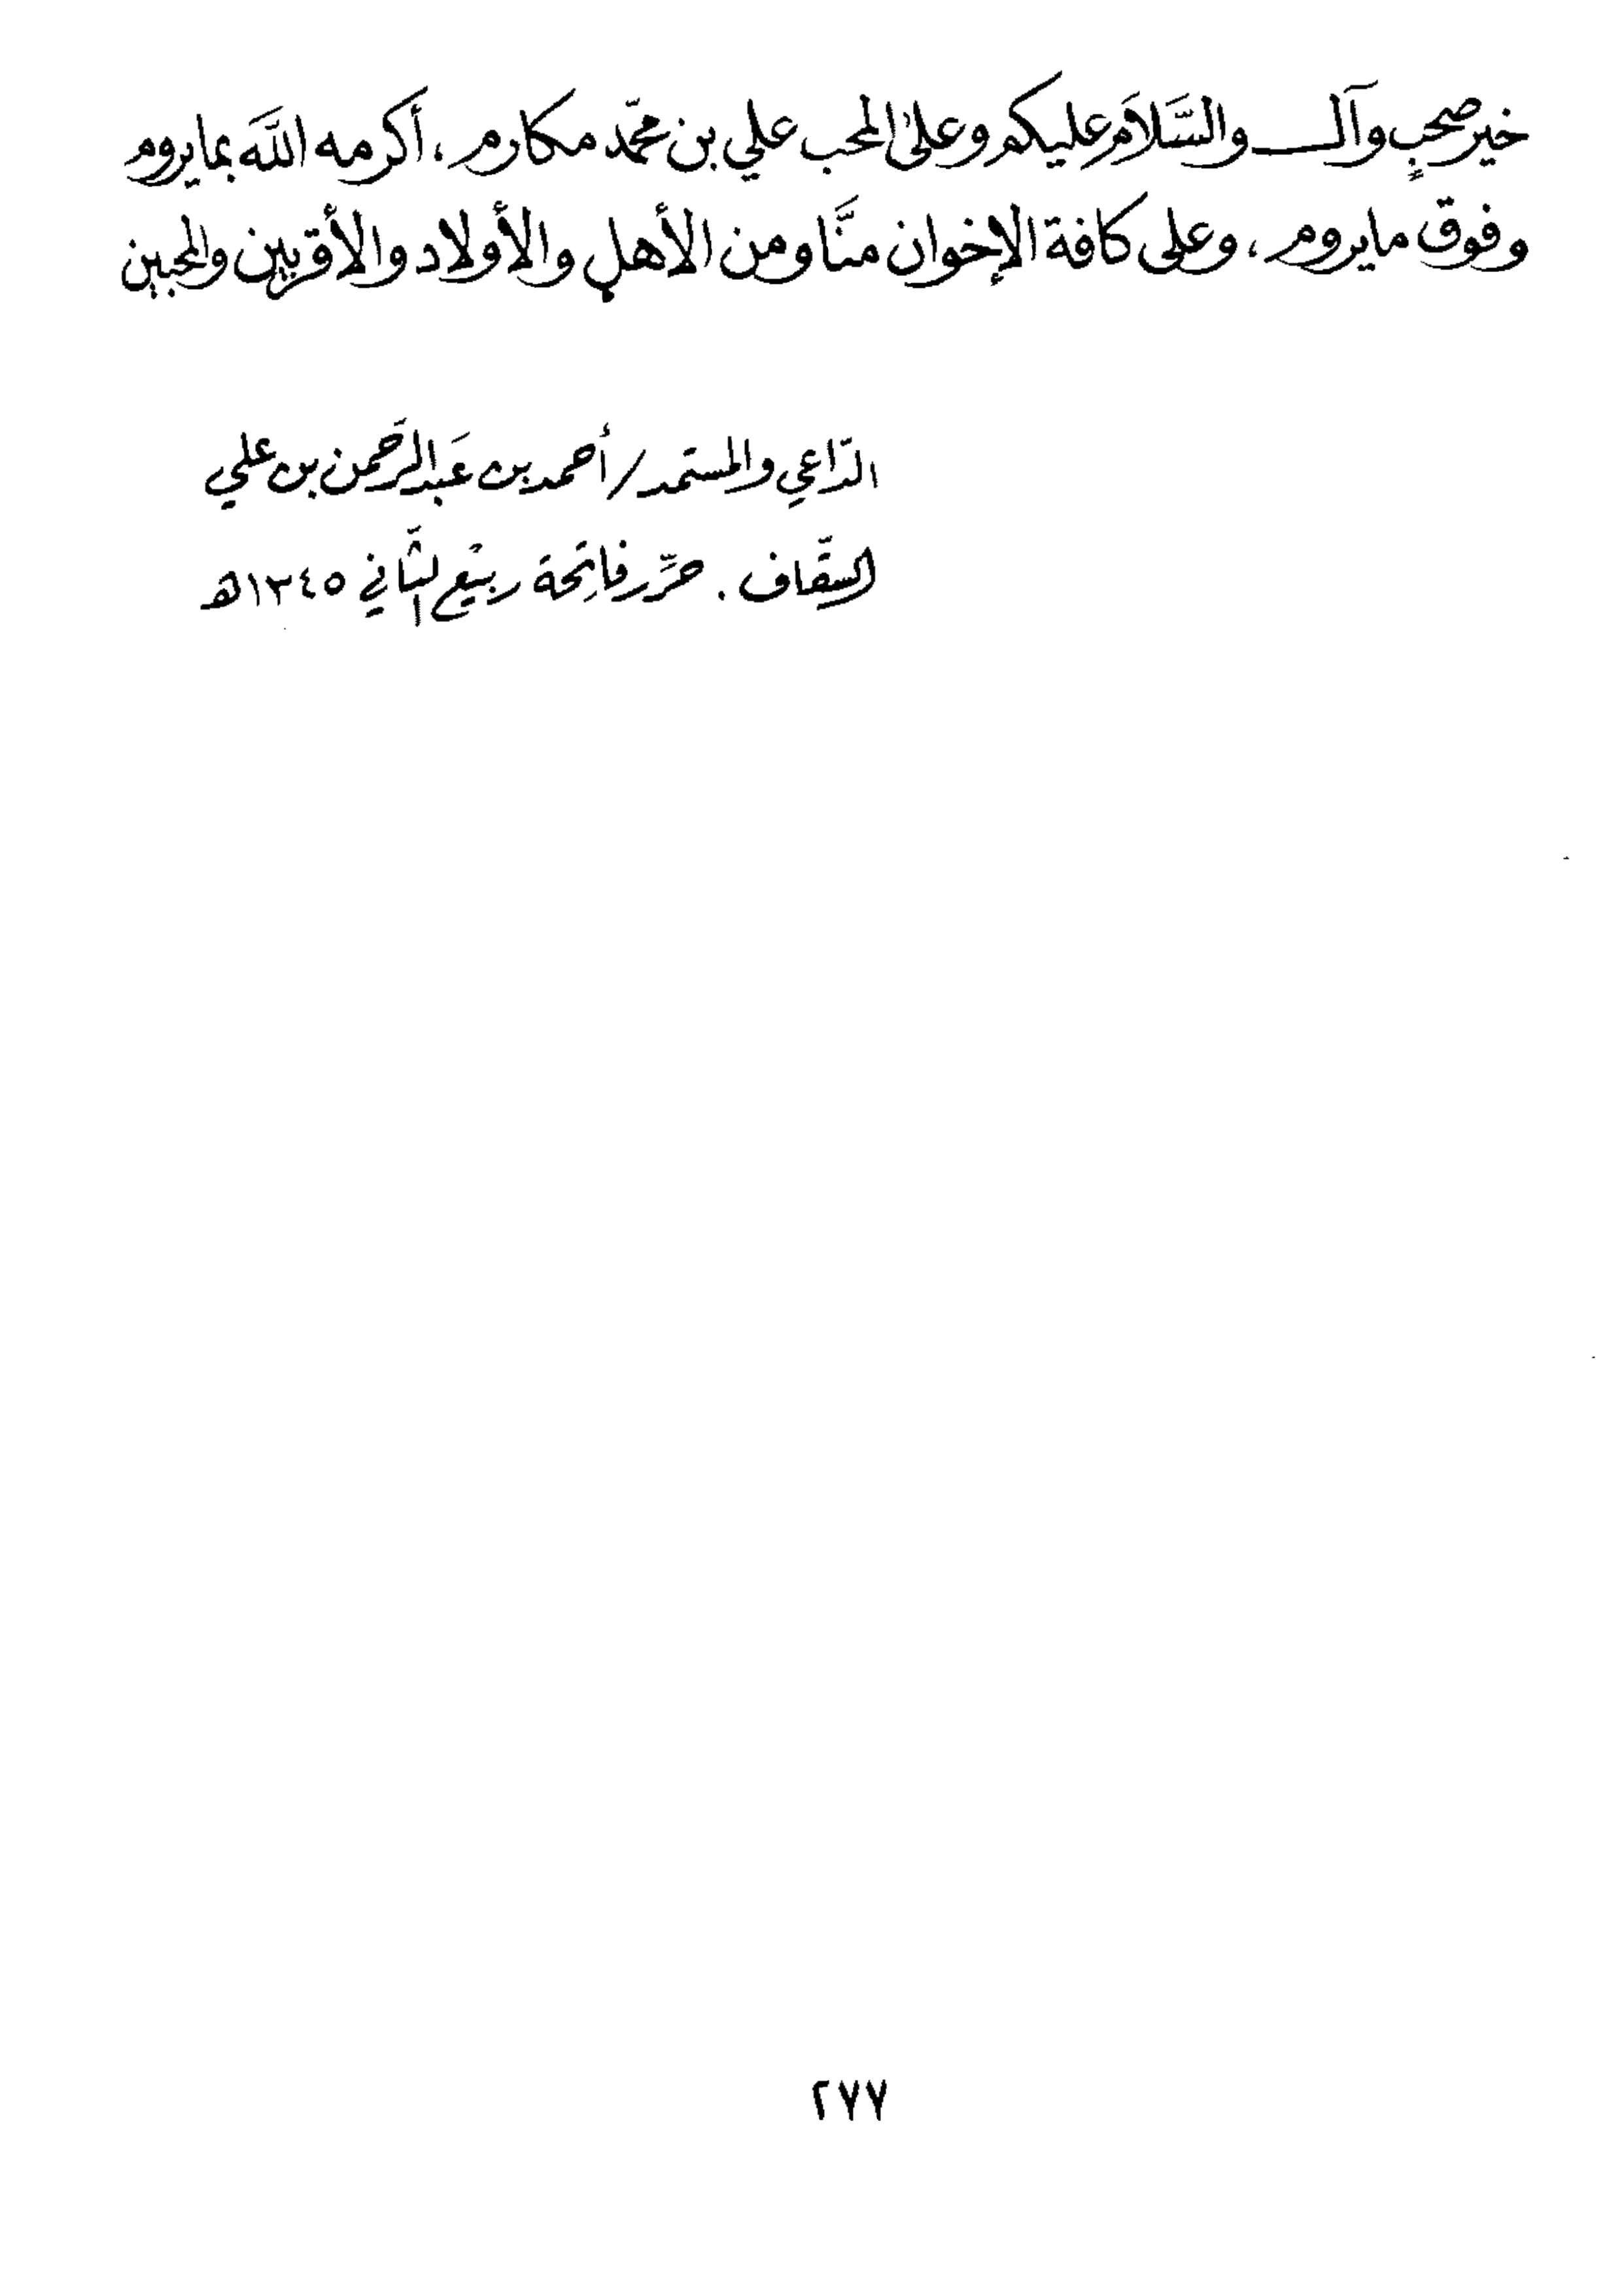 خير صحبٍ وآلـــ والسَّلاَم عليكم وعلىٰ المحب علي بن محمّد مكارم، أكرمه اللَّه بما يروم
وفوق ما يروم، وعلى كافة الإخوان منَّا ومن الأهل والأولاد والأقربين والمحبين
الدّاعي والمستمد / أحمد بن عَبد الرَّحمن بن علي
السقّاف. حرِّر فاتِحة ربيْع الثّاني ١٣٤٥هـ
٢٧٧